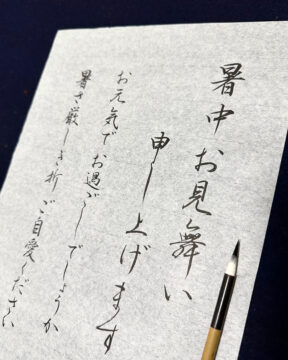 暑中お見舞い
申し上げます
お元気でお過ごしでしょうか
暑さ厳しき折ご自愛ください